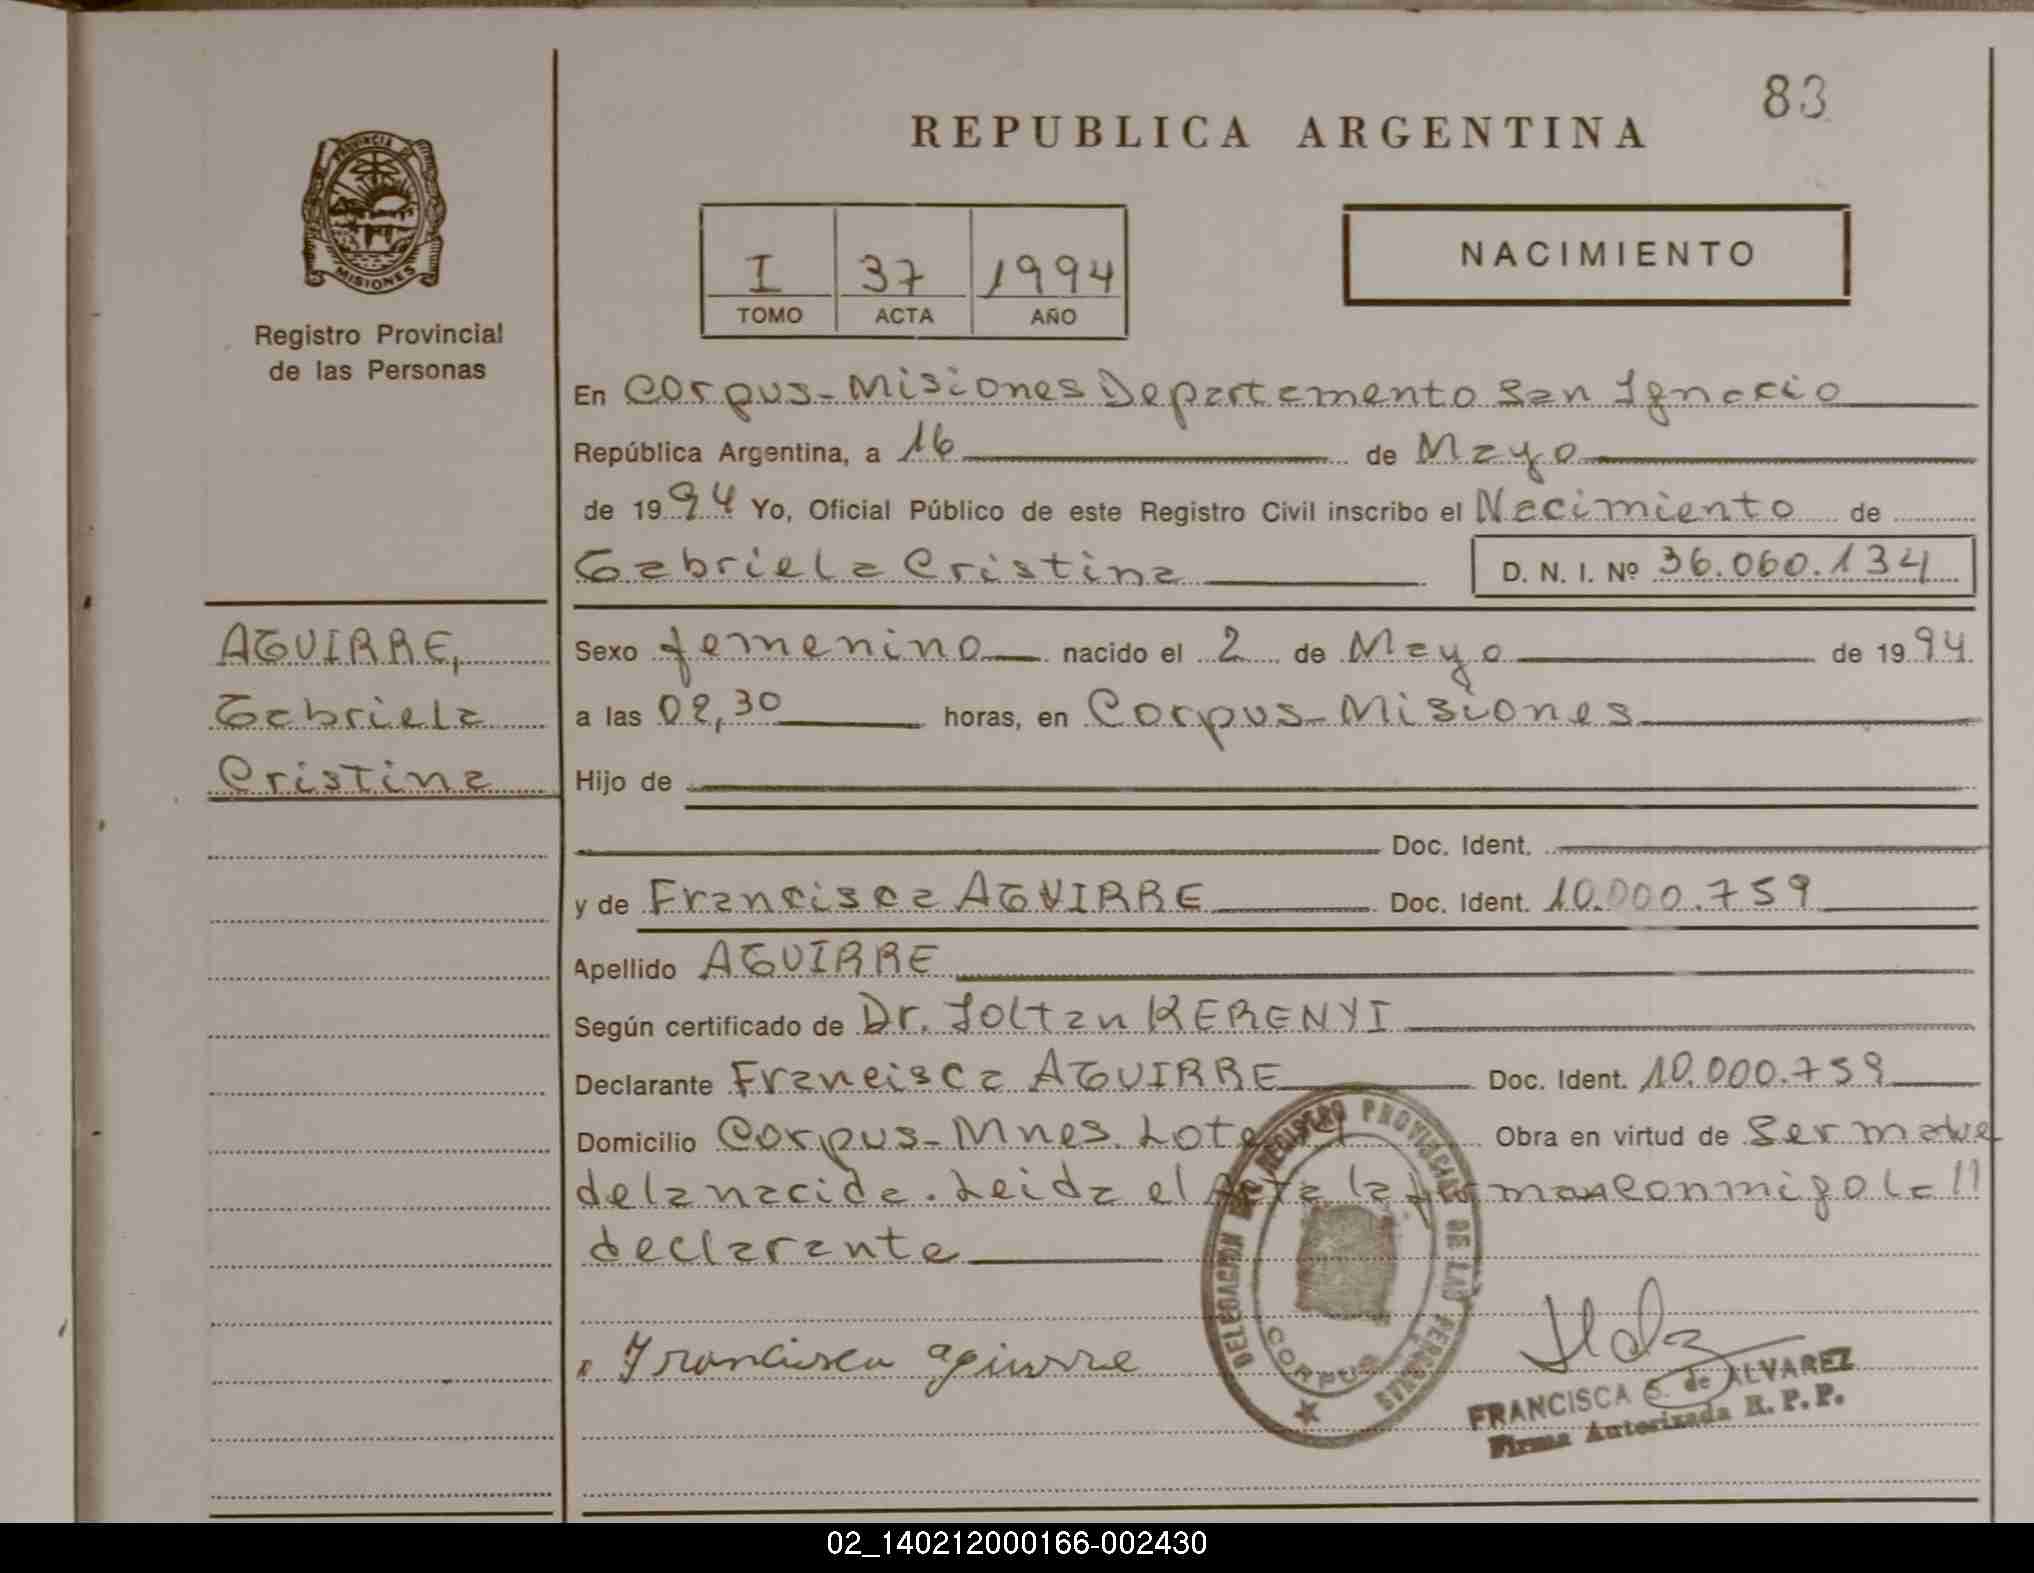 83
REPUBLICA ARGENTINA
PROVINCIA DE
MISIONES
Registro Provincial
de las Personas
I 37 1994
TOMO ACTA AÑO
NACIMIENTO
En Corpus-Misiones Departamento San Ignacio
República Argentina, a 16 de Mayo
de 1994 Yo, Oficial Público de este Registro Civil inscribo el Nacimiento de
Gabriela Cristina D. N. I. Nº 36.060.134
AGUIRRE,
Gabriela
Cristina
Sexo femenino nacido el 2 de Mayo de 1994.
a las 02,30 horas, en Corpus-Misiones
Hijo de
Doc. Ident.
y de Francisca AGUIRRE Doc. Ident. 10.000.759
Apellido AGUIRRE
Según certificado de Dr. Zoltan KERENYI
Declarante Francisca AGUIRRE Doc. Ident. 10.000.759
Domicilio Corpus-Mnes. Lote Obra en virtud de Ser madre
de la nacida. Leida el Acta la firman conmigo la //
declarante
DELEGACION DE REGISTRO PROVINCIAL DE LAS PERSONAS
CORPUS
Francisca aguirre
FRANCISCA S. de ALVAREZ
Firma Autorizada R. P. P.
02_140212000166-002430